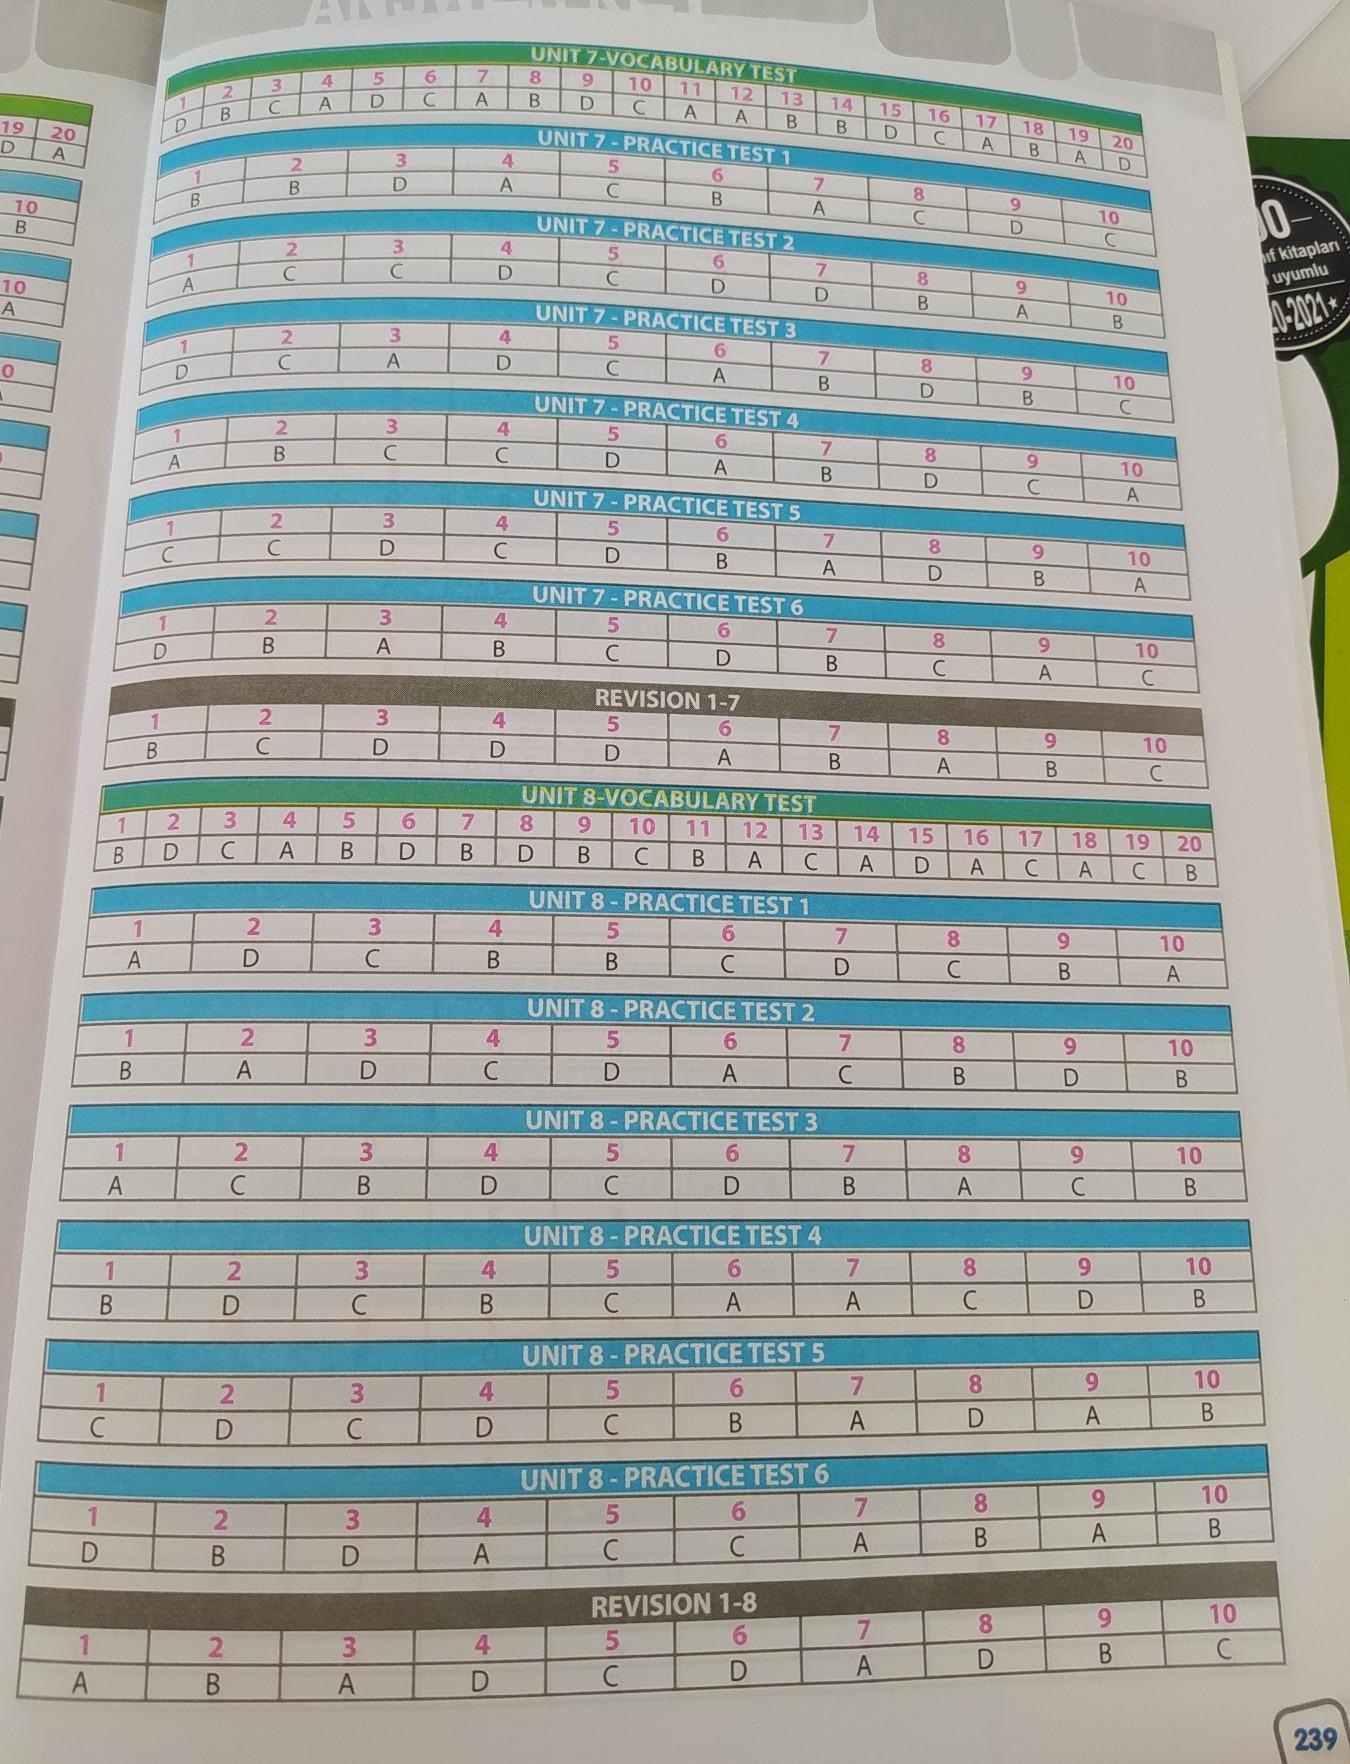 UNIT 7-VOCABULARY TEST
1 2 3 4 5 6 7 8 9 10 11 12 13 14 15 16 17 18 19 20
D B C A D C A B D C A A B B D C A B A D
UNIT 7 - PRACTICE TEST 1
1 2 3 4 5 6 7 8 9 10
B B D A C B A C D C
UNIT 7 - PRACTICE TEST 2
1 2 3 4 5 6 7 8 9 10
A C C D C D D B A B
UNIT 7 - PRACTICE TEST 3
1 2 3 4 5 6 7 8 9 10
D C A D C A B D B C
UNIT 7 - PRACTICE TEST 4
1 2 3 4 5 6 7 8 9 10
A B C C D A B D C A
UNIT 7 - PRACTICE TEST 5
1 2 3 4 5 6 7 8 9 10
C C D C D B A D B A
UNIT 7 - PRACTICE TEST 6
1 2 3 4 5 6 7 8 9 10
D B A B C D B C A C
REVISION 1-7
1 2 3 4 5 6 7 8 9 10
B C D D D A B A B C
UNIT 8-VOCABULARY TEST
1 2 3 4 5 6 7 8 9 10 11 12 13 14 15 16 17 18 19 20
B D C A B D B D B C B A C A D A C A C B
UNIT 8 - PRACTICE TEST 1
1 2 3 4 5 6 7 8 9 10
A D C B B C D C B A
UNIT 8 - PRACTICE TEST 2
1 2 3 4 5 6 7 8 9 10
B A D C D A C B D B
UNIT 8 - PRACTICE TEST 3
1 2 3 4 5 6 7 8 9 10
A C B D C D B A C B
UNIT 8 - PRACTICE TEST 4
1 2 3 4 5 6 7 8 9 10
B D C B C A A C D B
UNIT 8 - PRACTICE TEST 5
1 2 3 4 5 6 7 8 9 10
C D C D C B A D A B
UNIT 8 - PRACTICE TEST 6
1 2 3 4 5 6 7 8 9 10
D B D A C C A B A B
REVISION 1-8
1 2 3 4 5 6 7 8 9 10
A B A D C D A D B C
239
19 20
D A
10
B
10
A
kitapları
uyumlu